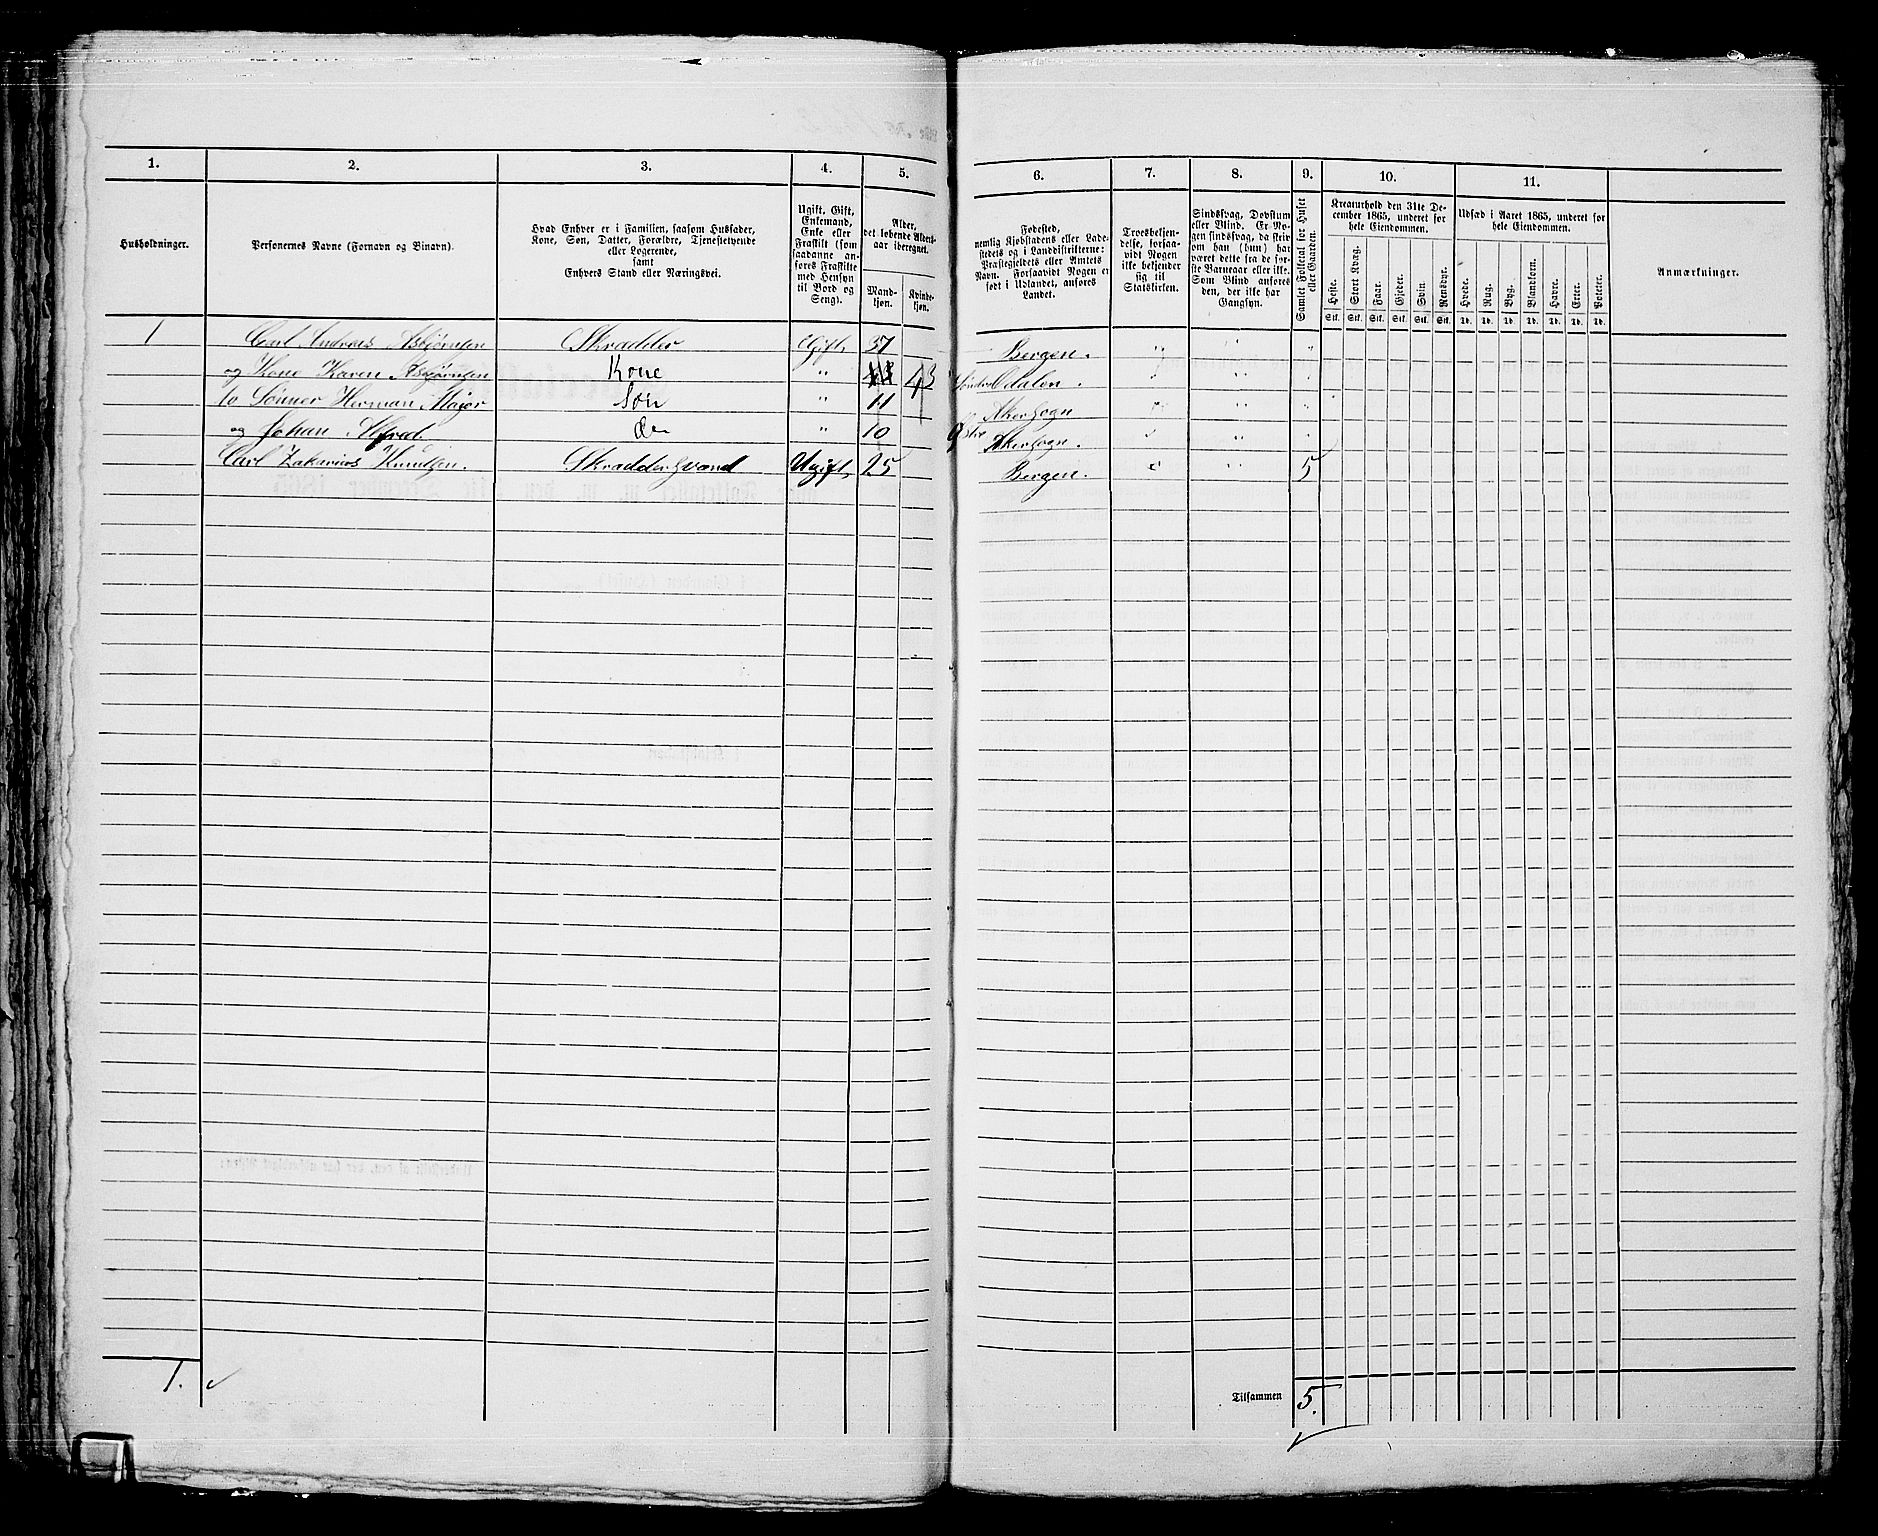 1. 2. 3. 4. 5. 6. 7. 8. 9. 10. 11.
Husholdninger.
Personernes Navne (Fornavn og Binavn).
Hvad Enhver er i Familien, saasom Husfader,
Kone, Søn, Datter, Forældre, Tjenestetyende
eller Logerende,
samt
Enhvers Stand eller Næringsvei.
Ugift, Gift,
Enkemand,
Enke eller
Fraskilt (som
saadanne an-
føres Fraskilte
med Hensyn
til Bord og
Seng).
Alder,
det løbende Alders-
aar iberegnet.
Mand-
kjøn.
Kvinde-
kjøn.
Fødested,
nemlig Kjøbstadens eller Lade-
stedets og i Landdistrikterne:
Præstegjeldets eller Amtets
Navn. Forsaavidt Nogen er
født i Udlandet, anføres
Landet.
Troesbekjen-
delse, forsaa-
vidt Nogen
ikke bekjender
sig til
Statskirken.
Sindssvag, Døvstum
eller Blind. Er No-
gen sindssvag, da skriv
om han (hun) har
været dette fra de før-
ste Barneaar eller ikke.
Som Blind anføres
den, der ikke har
Gangsyn.
Samlet Folketal for Huset
eller Gaarden.
Kreaturhold den 31te De-
cember 1865, underet for
hele Eiendommen.
Heste. Stort Kvæg. Faar. Gjeder. Svin. Rensdyr.
Stk. Stk. Stk. Stk. Stk. Stk.
Udsæd i Aaret 1865, underet for
hele Eiendommen.
Hvede. Rug. Byg. Blandkorn. Havre. Erter. Poteter.
Td. Td. Td. Td. Td. Td. Td.
Anmærkninger.
1 Carl Andreas Asbjørnsen Skradder Ugift 37 Bergen. " " "
og Kone Karen Asbjørnsen Kone " 43 43 Søndre Odalen. " " "
to Sønner Herman Major Søn " 11 Akersogn " " "
og Johan Alfred. " 10 Østre Akersogn. " " "
Carl Zakarias Knudsen. Skraddersvænd Ugift 25 Bergen. " " 5
1.
Tilsammen 5.